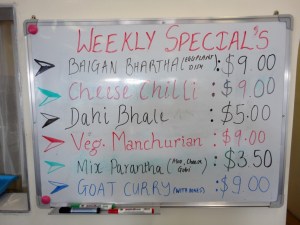 WEEKLY SPECIAL'S
BAIGAN BHARTHA (EGGPLANT DISH) : $9.00
Cheese Chilli : $9.00
DAHI BHALE : $5.00
Veg. Manchurian : $9.00
Mix Parantha (Aloo, Onion Gobi) : $3.50
GOAT CURRY (WITH BONES) : $9.00